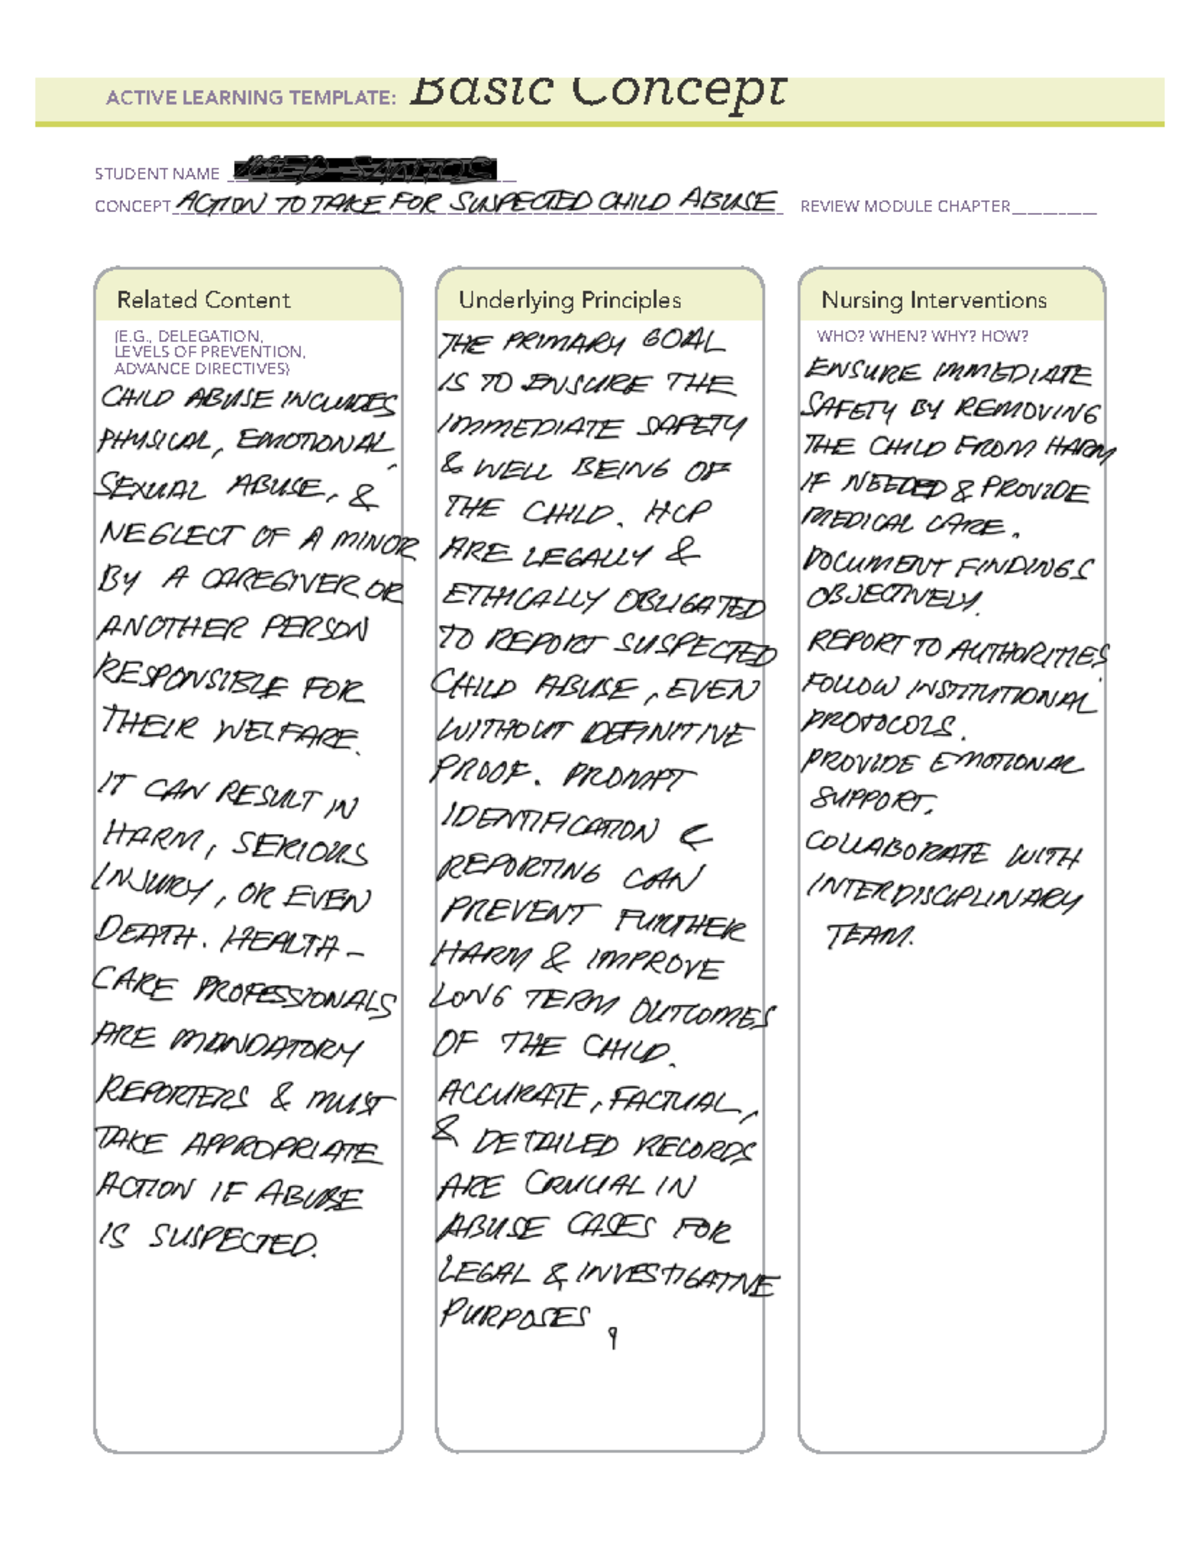 ACTIVE LEARNING TEMPLATE: Basic Concept
STUDENT NAME
CONCEPT ACTION TO TAKE FOR SUSPECTED CHILD ABUSE REVIEW MODULE CHAPTER
Related Content
(E.G., DELEGATION,
LEVELS OF PREVENTION,
ADVANCE DIRECTIVES)
CHILD ABUSE INCLUDES
PHYSICAL, EMOTIONAL,
SEXUAL ABUSE, &
NEGLECT OF A MINOR
BY A CAREGIVER OR
ANOTHER PERSON
RESPONSIBLE FOR
THEIR WELFARE.
IT CAN RESULT IN
HARM, SERIOUS
INJURY, OR EVEN
DEATH. HEALTH-
CARE PROFESSIONALS
ARE MANDATORY
REPORTERS & MUST
TAKE APPROPRIATE
ACTION IF ABUSE
IS SUSPECTED.
Underlying Principles
THE PRIMARY GOAL
IS TO ENSURE THE
IMMEDIATE SAFETY
& WELL BEING OF
THE CHILD. HCP
ARE LEGALLY &
ETHICALLY OBLIGATED
TO REPORT SUSPECTED
CHILD ABUSE, EVEN
WITHOUT DEFINITIVE
PROOF. PROMPT
IDENTIFICATION &
REPORTING CAN
PREVENT FURTHER
HARM & IMPROVE
LONG TERM OUTCOMES
OF THE CHILD.
ACCURATE, FACTUAL,
& DETAILED RECORDS
ARE CRUCIAL IN
ABUSE CASES FOR
LEGAL & INVESTIGATIVE
PURPOSES
Nursing Interventions
WHO? WHEN? WHY? HOW?
ENSURE IMMEDIATE
SAFETY BY REMOVING
THE CHILD FROM HARM
IF NEEDED & PROVIDE
MEDICAL CARE.
DOCUMENT FINDINGS
OBJECTIVELY.
REPORT TO AUTHORITIES.
FOLLOW INSTITUTIONAL
PROTOCOLS.
PROVIDE EMOTIONAL
SUPPORT.
COLLABORATE WITH
INTERDISCIPLINARY
TEAM.